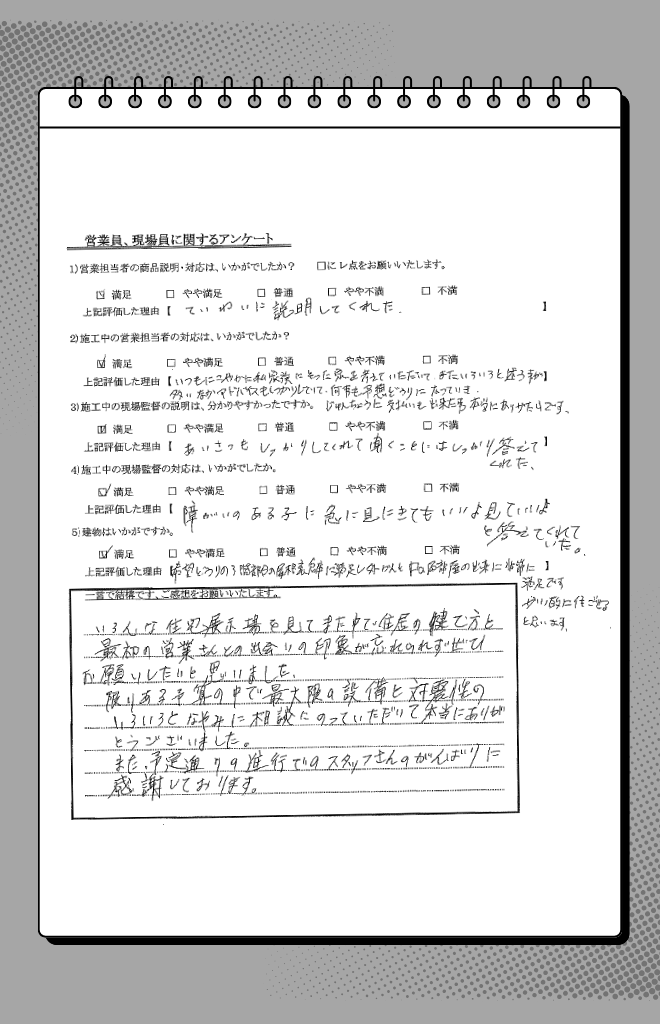 営業員、現場員に関するアンケート
1)営業担当者の商品説明・対応は、いかがでしたか？ □にレ点をお願いいたします。
☑ 満足 □ やや満足 □ 普通 □ やや不満 □ 不満
上記評価した理由【 ていねいに説明してくれた. 】
2)施工中の営業担当者の対応は、いかがでしたか？
☑ 満足 □ やや満足 □ 普通 □ やや不満 □ 不満
上記評価した理由【 いつもにこやかに私家族にそった家を考えていただいて、またいろいろと迷う事が】
多いなかアドバイスもしっかりしていて、何事も予想どうりになっていき.
3)施工中の現場監督の説明は、分かりやすかったですか。 じゅんちょうに支払いも出来た事本当にありがたいです、
☑ 満足 □ やや満足 □ 普通 □ やや不満 □ 不満
上記評価した理由【 あいさつもしっかりしてくれて聞くことにはしっかり答えて 】
くれた、
4)施工中の現場監督の対応は、いかがでしたか。
☑ 満足 □ やや満足 □ 普通 □ やや不満 □ 不満
上記評価した理由【 障がいのある子に急に見にきてもいいよ見ていいよ 】
と答えてくれて
いた。
5)建物はいかがですか。
☑ 満足 □ やや満足 □ 普通 □ やや不満 □ 不満
上記評価した理由【 希望どうりの に満足し の出来に非常に 】
満足です
に住ごせる
と思います.
一言で結構です、ご感想をお願いいたします。
いろんな住宅展示場を見てきた中で住居の健て方と
最初の営業さんとの出会いの印象が忘れられずぜひ
お願いしたいと思いました.
限りある予算の中で最大限の設備と対震性の
いろいろとなやみに相談にのっていただいて本当にありが
とうございました。
また、予定通りの進行でのスタッフさんのがんばりに
感謝しております。